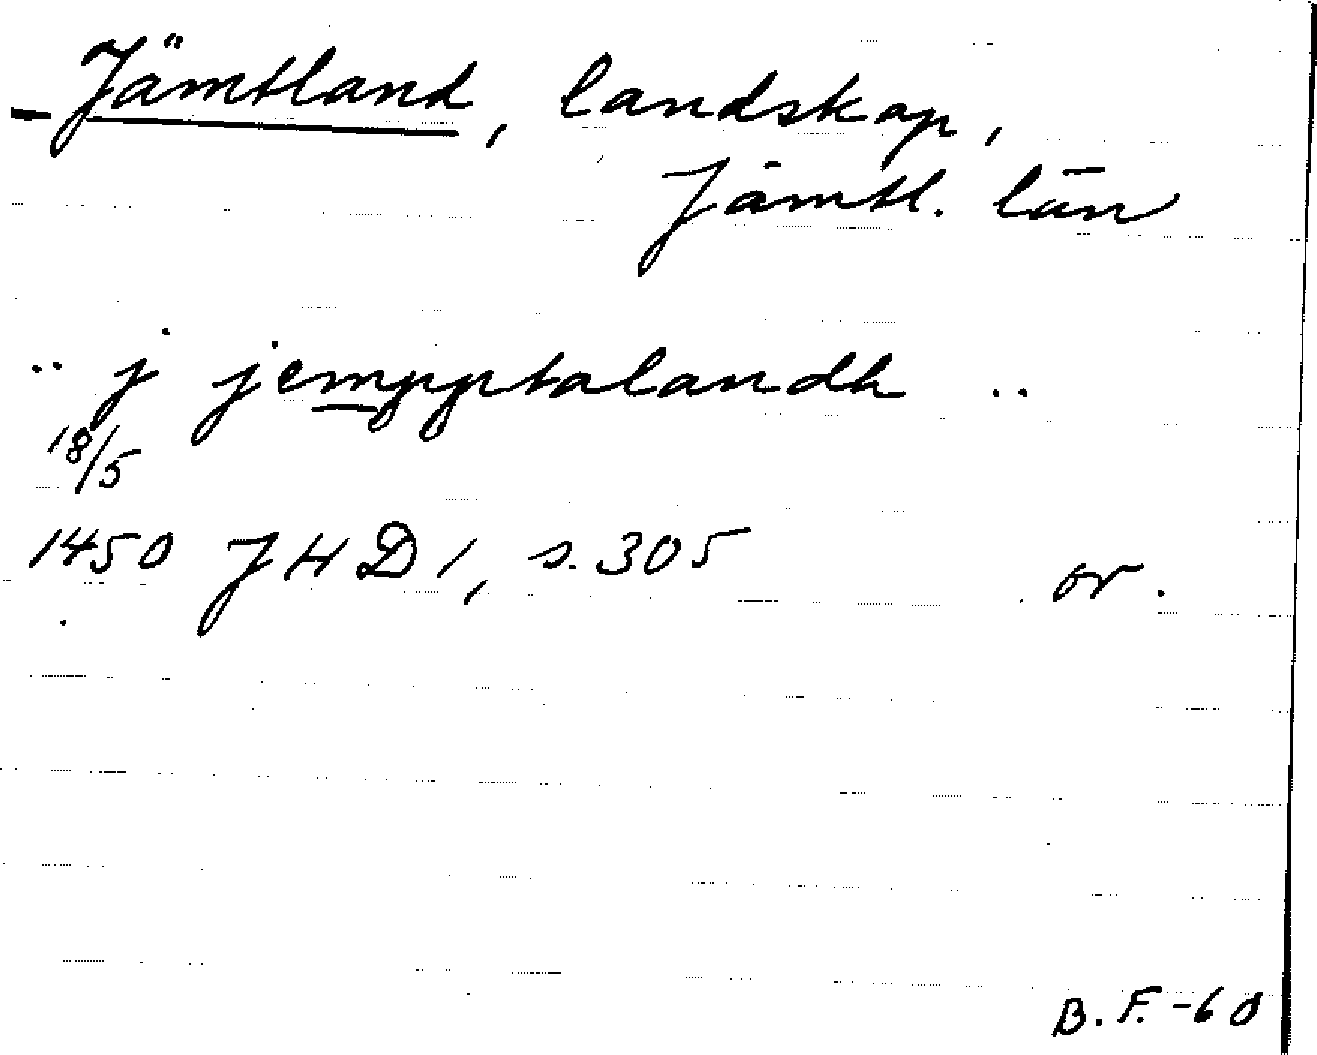 Jämtland, landskap,
Jämtl. län
.. j jempptalandh ..
18/5
1450 JHD 1, s. 305 or.
B.F.-60